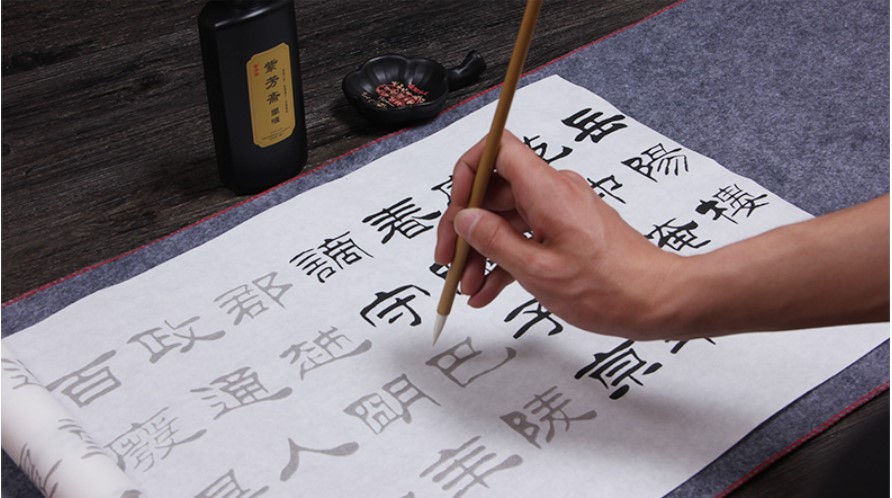 紫芳斋
墨液
岳陽樓
淹
慶
春子京
謫守巴陵
郡越明年
政通人
百廢具